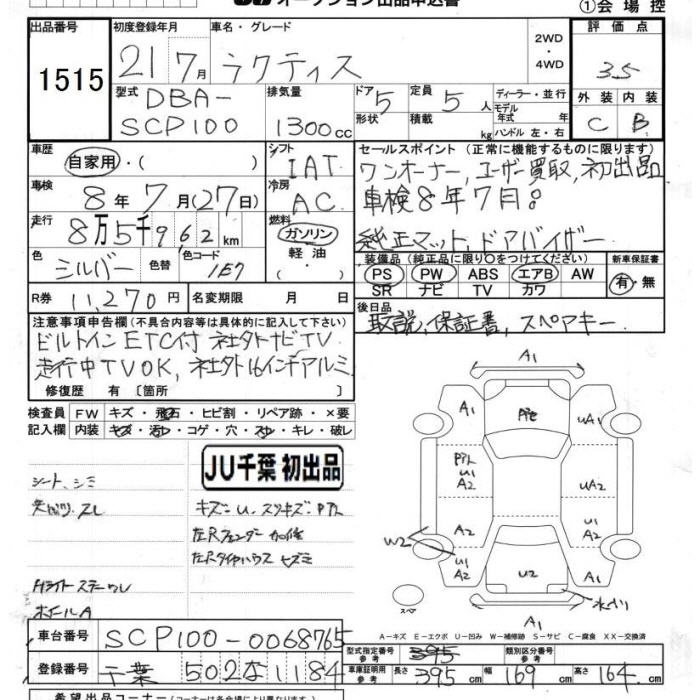 オークション出品申込書
①会場控
出品番号 初度登録年月 車名・グレード 評価点
1515 21 7月 ラクティス 2WD・4WD 3.5
型式 排気量 ドア 定員 ディーラー・並行 外装 内装
DBA-SCP100 1300cc 5 5人 モデル年式 年式 C B
形状 積載 kg ハンドル 左・右
車歴 シフト セールスポイント (正常に機能するものに限ります)
自家用・( ) IAT ワンオーナー,ユーザー買取,初出品
車検 冷房 車検8年7月。
8年7月(27日) AC 純正マット,ドアバイザー
走行 燃料
8万5千9,62km ガソリン・軽油・( )
装備品(純正品に限り○をつけてください) 新車保証書
色 色替 色コード PS PW ABS エアB AW 有・無
シルバー 1E7 SR ナビ TV カワ
R券 11,270円 名変期限 月 日
後日品
取説,保証書,スペアキー
注意事項申告欄(不具合内容等は具体的に記入して下さい)
ビルトインETC付 社外ナビTV
走行中TVOK,社外16インチアルミ
修復歴 有〔箇所 〕
検査員 FW キズ・飛石・ヒビ割・リペア跡・×要
記入欄 内装 キズ・汚レ・コゲ・穴・スレ・キレ・破レ
JU千葉 初出品
シート、シミ
キズ ー U. スリキズ
左Rフェンダー 加修
左Rタイヤハウス ヒズミ
Hライト ステーワレ
ホイールA
A1
A1 UA1
U1
A2 UA2
A2 U1
A2
W2 U1
A2 U2 A1
スペア 水ヘリ
A1
A-キズ E-エクボ U-凹み W-補修跡 S-サビ C-腐食 XX-交換済
車台番号 SCP100-0068765
型式指定番号 参考 395 類別区分番号 参考
登録番号 千葉 502 な 184
車庫証明用 参考 長さ 395cm 幅 169cm 高さ 164cm
希望出品コーナー(コーナーは各会場により異なります)